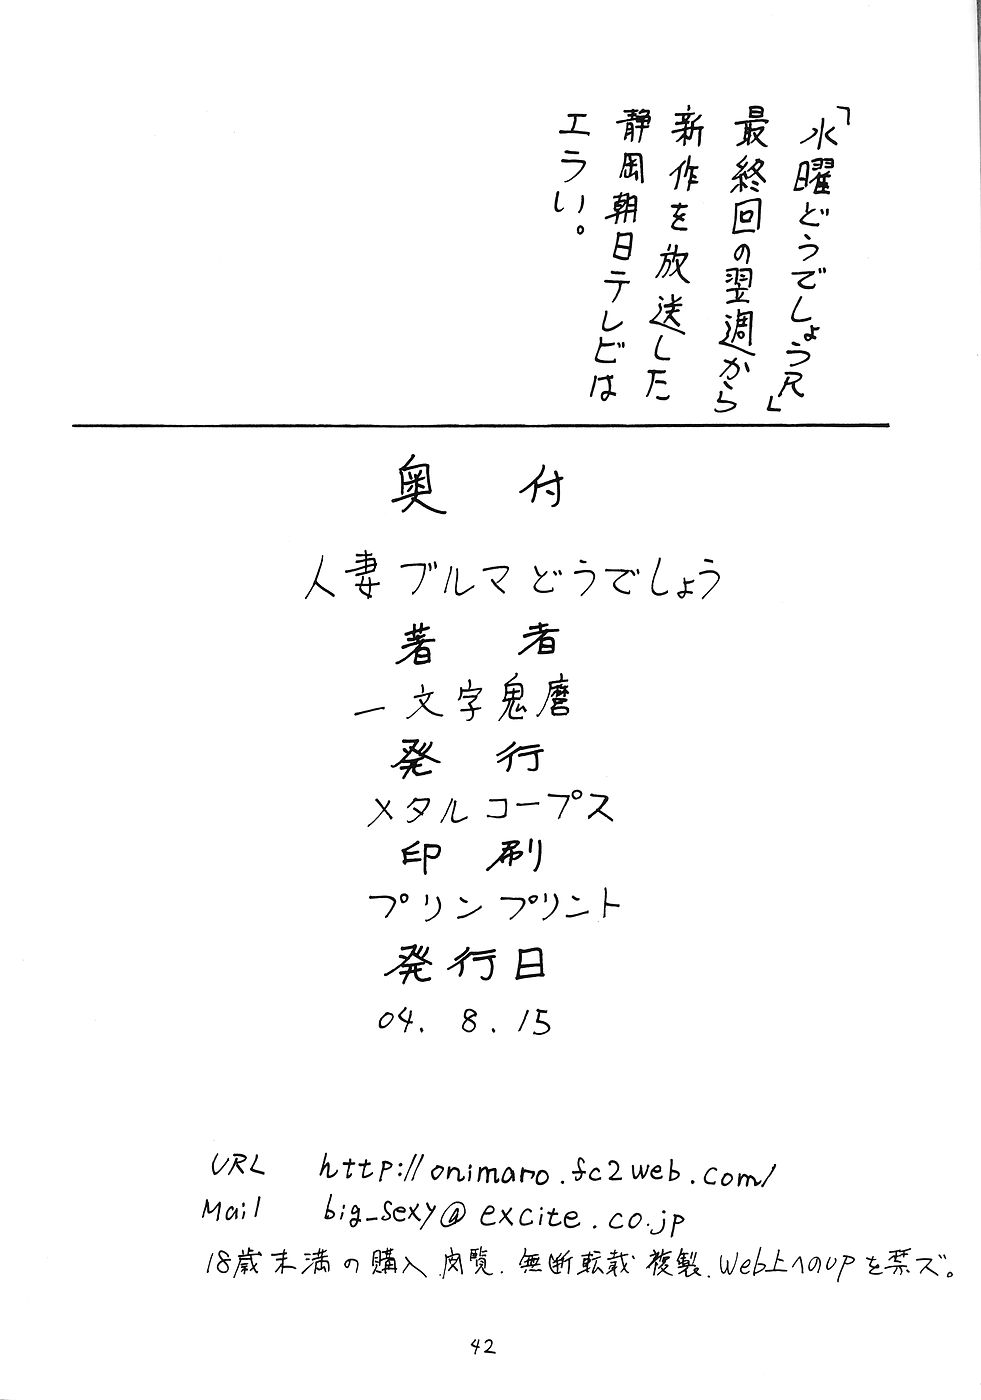 「水曜どうでしょうR」
最終回の翌週から
新作を放送した
静岡朝日テレビは
エラい。
奥付
人妻ブルマどうでしょう
著者
一文字鬼磨
発行
メタルコープス
印刷
プリンプリント
発行日
04. 8. 15
URL http://onimaro.fc2web.com/
Mail big_sexy@excite.co.jp
18歳未満の購入、閲覧、無断転載、複製、Web上へのupを禁ズ。
42